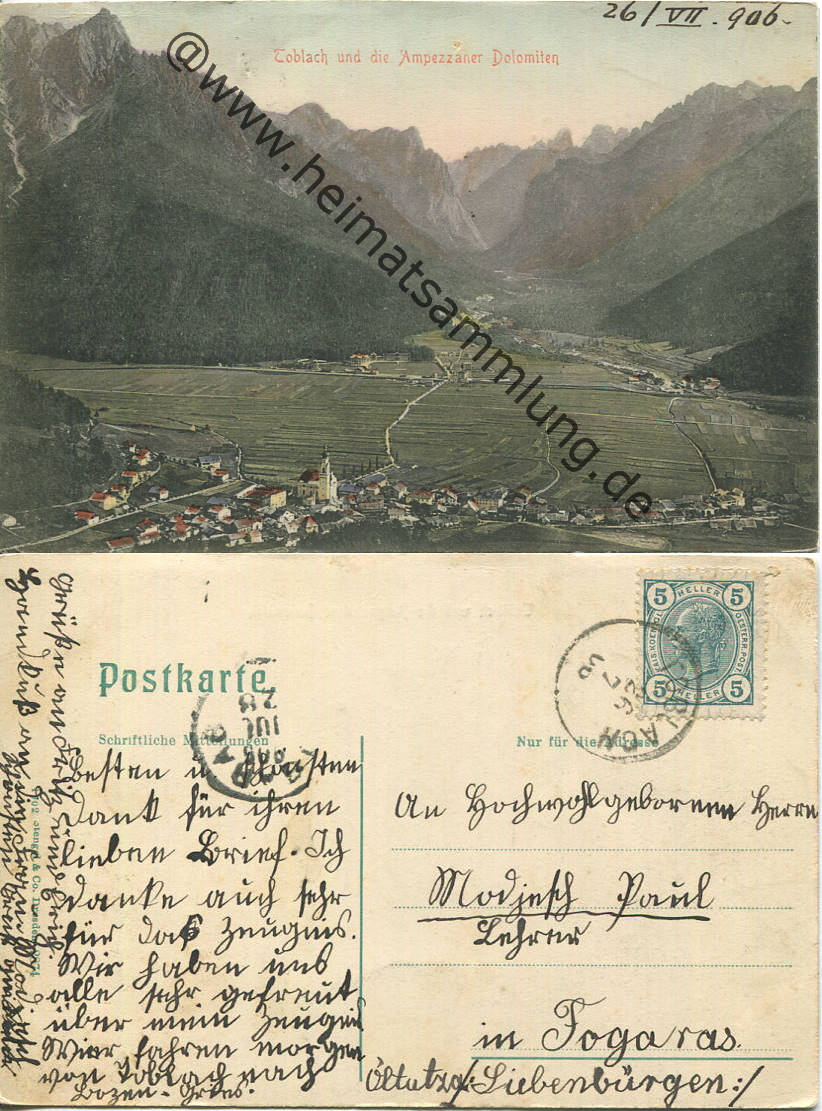 26/VII. 906.
Toblach und die Ampezzaner Dolomiten
@www.heimatsammlung.de
Postkarte.
Schriftliche Mitteilungen
Nur für die Adresse
5 HELLER 5
KAIS. KOENIGL. OESTERR. POST
5 HELLER 5
28
JUL
An Hochwohlgebornen Herrn
Modjesch Paul
Lehrer
in Fogaras
:Siebenbürgen:/
Besten u. schönsten
Dank für ihren
lieben Brief. Ich
danke auch sehr
für das Zeugnis.
Wir haben uns
alle sehr gefreut
über mein Zeugnis
Wier fahren morgen
von Toblach nach
Bozen-Gries.
Grüße an Fritz und
Handkuß an
Stengel & Co. Dresden